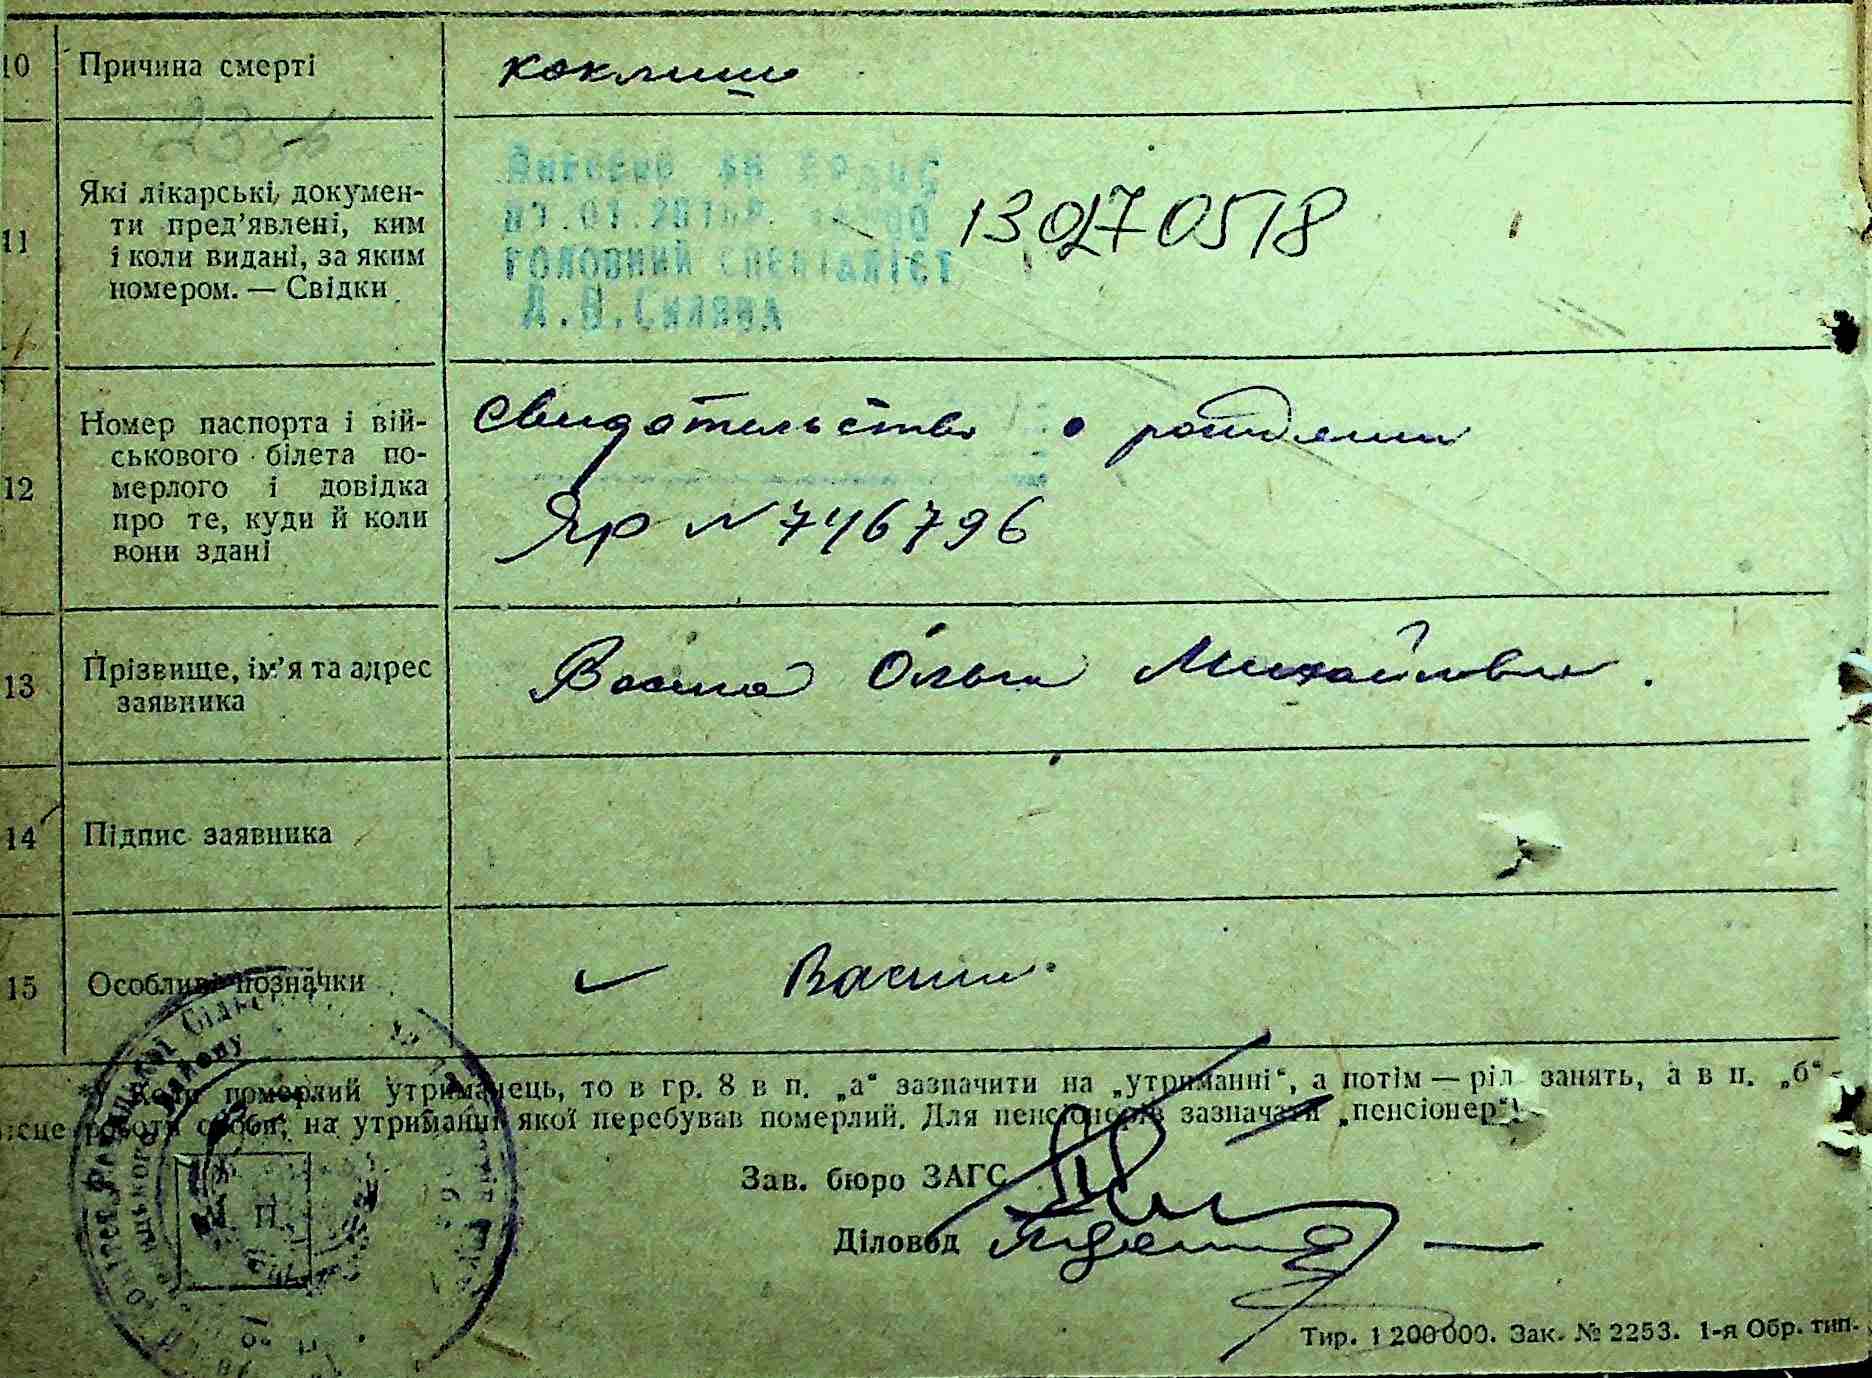 10 Причина смерті
коклюш
11 Які лікарські документи пред'явлені, ким
і коли видані, за яким
номером. — Свідки
ГОЛОВНИЙ СПЕЦІАЛІСТ
13027 0518
12 Номер паспорта і вій-
ськового білета по-
мерлого і довідка
про те, куди й коли
вони здані
Свидетельство о рождении
ЯР N 746796
13 Прізвище, ім'я та адрес
заявника
Васина Ольга Михайловна.
14 Підпис заявника
15 Особливі позначки
Васина
Коли померлий утриманець, то в гр. 8 в п. „а“ зазначити на „утриманні“, а потім — рід занять, а в п. „б“ –
місце роботи особи, на утриманні якої перебував померлий. Для пенсіонерів зазначати „пенсіонер“.
Зав. бюро ЗАГС
Діловод
М. П.
Тир. 1 200 000. Зак. № 2253. 1-я Обр. тип.